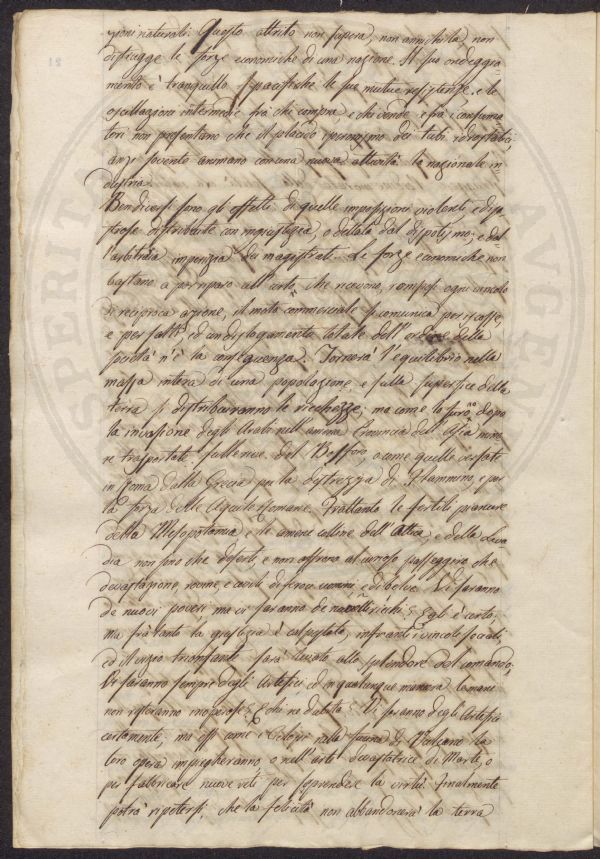 zioni naturali. Questo attrito non supera, non annichila, non
distrugge le forze economiche di una nazione. Il suo ondeggia-
mento è tranquillo, pacifiche le sue mutue resistenze, e le
oscillazioni intermedie frà chi compra, e chi vende, e frà i consuma-
tori non presentano che il placido dei tubi idrostatici,
anzi sovente animano con una nuova attività la nazionale in-
dustria.
Ben diversi sono gli effetti di quelle imposizioni violenti, e disa-
strose distribuite con ingiustizia, o dettate dal dispotismo, e dal-
l'arbitraria imperizia dei magistrati. Le forze economiche non
bastano a poi riparo all'urto, che ricevono, rompesi ogni vincolo
di reciproca azione, il moto commerciale si comunica per
e per salti, ed un dislogamento totale dell'ordine della
società n'è la conseguenza. Tornerà l'equilibrio nella
massa intera di una popolazione, e sulla superficie della
terra si distribuiranno le ricchezze, ma come lo furono dopo
la invasione degli Arabi nell'amena Provincia dell'Asia mino-
re trasportate sulle rive del Bosforo, o come quelle
in Roma dalla Grecia per la destrezza di Flaminio, e per
la forza delle Aquile Romane. Frattanto le fertili pianure
della Mesopotamia, e le amene colline dell'Attica, e della Liva-
dia non sono che deserti, e non offrono al curioso passeggero che
devastazione, rovine, e covili di feroci uomini, e di belve. Vi saranno
de' nuovi poveri, ma vi saranno de' novelli ricchi? Egli è certo:
ma frà tanto la giustizia è calpestata, infranti i vincoli sociali,
ed il vizio trionfante sarà elevato allo splendore del comando;
Vi saranno sempre degli Artefici, ed in qualunque maniera le mani
non resteranno inoperose? E chi ne dubita? Vi saranno degli Artefici
certamente, ma essi come i Ciclopi nella fucina di Vulcano la
loro opera impiegheranno o nell'arte devastatrice di Marte, o
per fabbricare nuove reti per sorprendere la virtù. Finalmente
potrà ripetersi, che la felicità non abbandonerà la terra
SPERITA
AVGEN